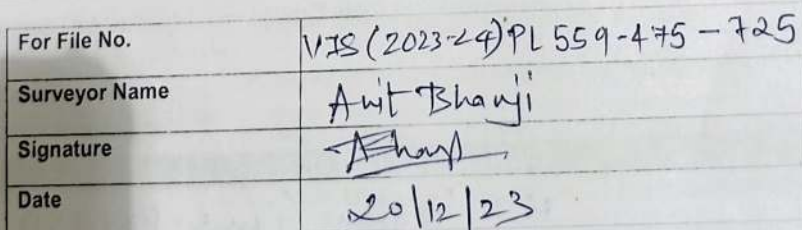 For File No. VIS (2023-24) PL 559-475-725
Surveyor Name Anit Bhanji
Signature
Date 20/12/23